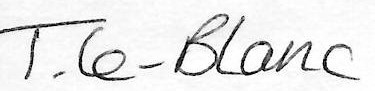 T. Le-Blanc